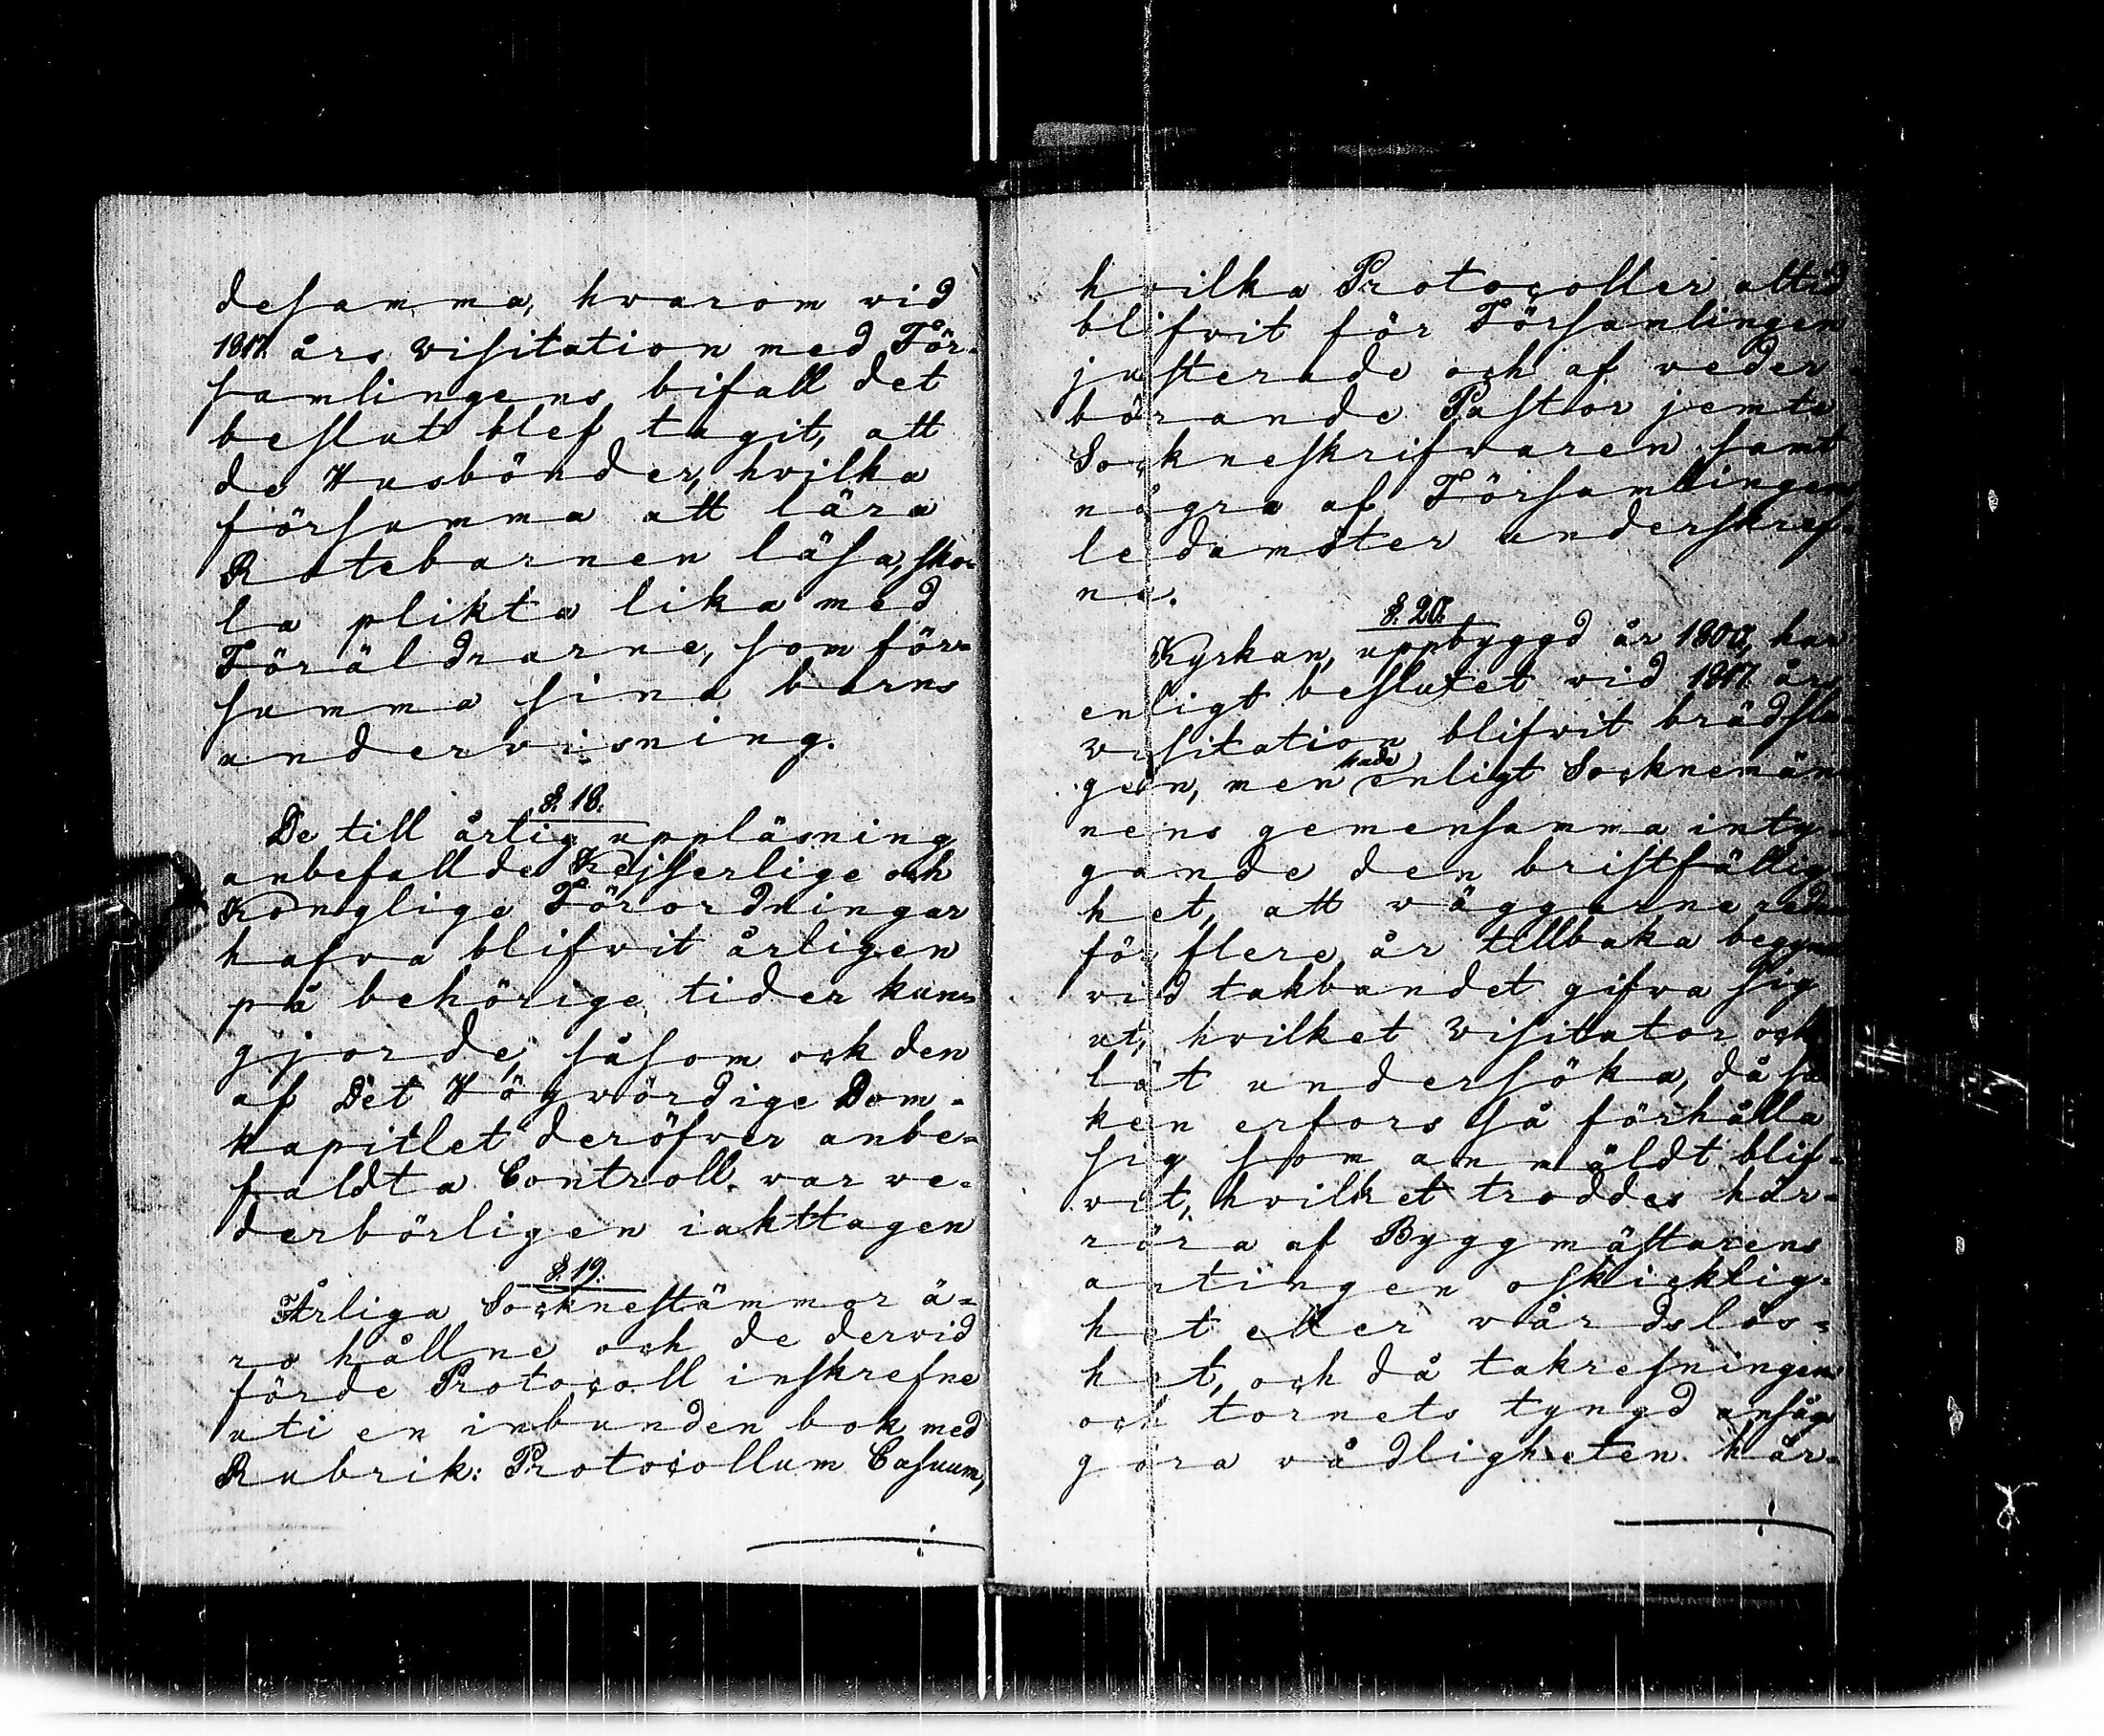 desamma, hvarom vid
1817 års visitation med För-
samlingens bifall det
beslut blef tagit, att
de Husbönder, hvilka
försumma att lära
Rotebarnen läsa, sko-
la plikta lika med
Föräldrarne, som för-
summa sina barns
undervisning.
§. 18.
De till årlig uppläsning
anbefallde Kejserlige och
Konglige Förordningar
hafva blifvit årligen
på behörige tider kun-
gjorde, såsom ock den
af Det Högvördige Dom-
kapitlet deröfver anbe-
faldta Controll. var ve-
derbörligen iakttagen
§. 19.
Årliga Sockneståmmor ä-
ro hållne och de dervid
förde Protocoll inskrefne
uti en inbunden bok med
Rubrik: Protocollum Casuum,
hvilka Protocoller altid
blifvit för Församlingen
justerade och af veder-
börande Pastor jemte
Sockneskrifvaren samt
några af Församlingens
ledamöter underskref-
ne.
§. 20.
Kyrkan, uppbyggd år 1800, har
enligt beslutet vid 1817 års
visitation blifvit brädsla-
gen, men hade enligt Socknemän-
nens gemensamma inty-
gande den bristfällig-
het, att väggarne redan
för flere år tillbaka begynn
vid takbandet gifva sig
ut, hvilket Visitator och
lät undersöka, då sa-
ken erfors så förhålla
sig som anmäldt blif-
vit, hvilket troddes här-
röra af Byggmästarens
antingen oskicklig-
het eller vårdslös-
het, och då takresningens
och tornets tyngd ansågs
göra vådligheten här-